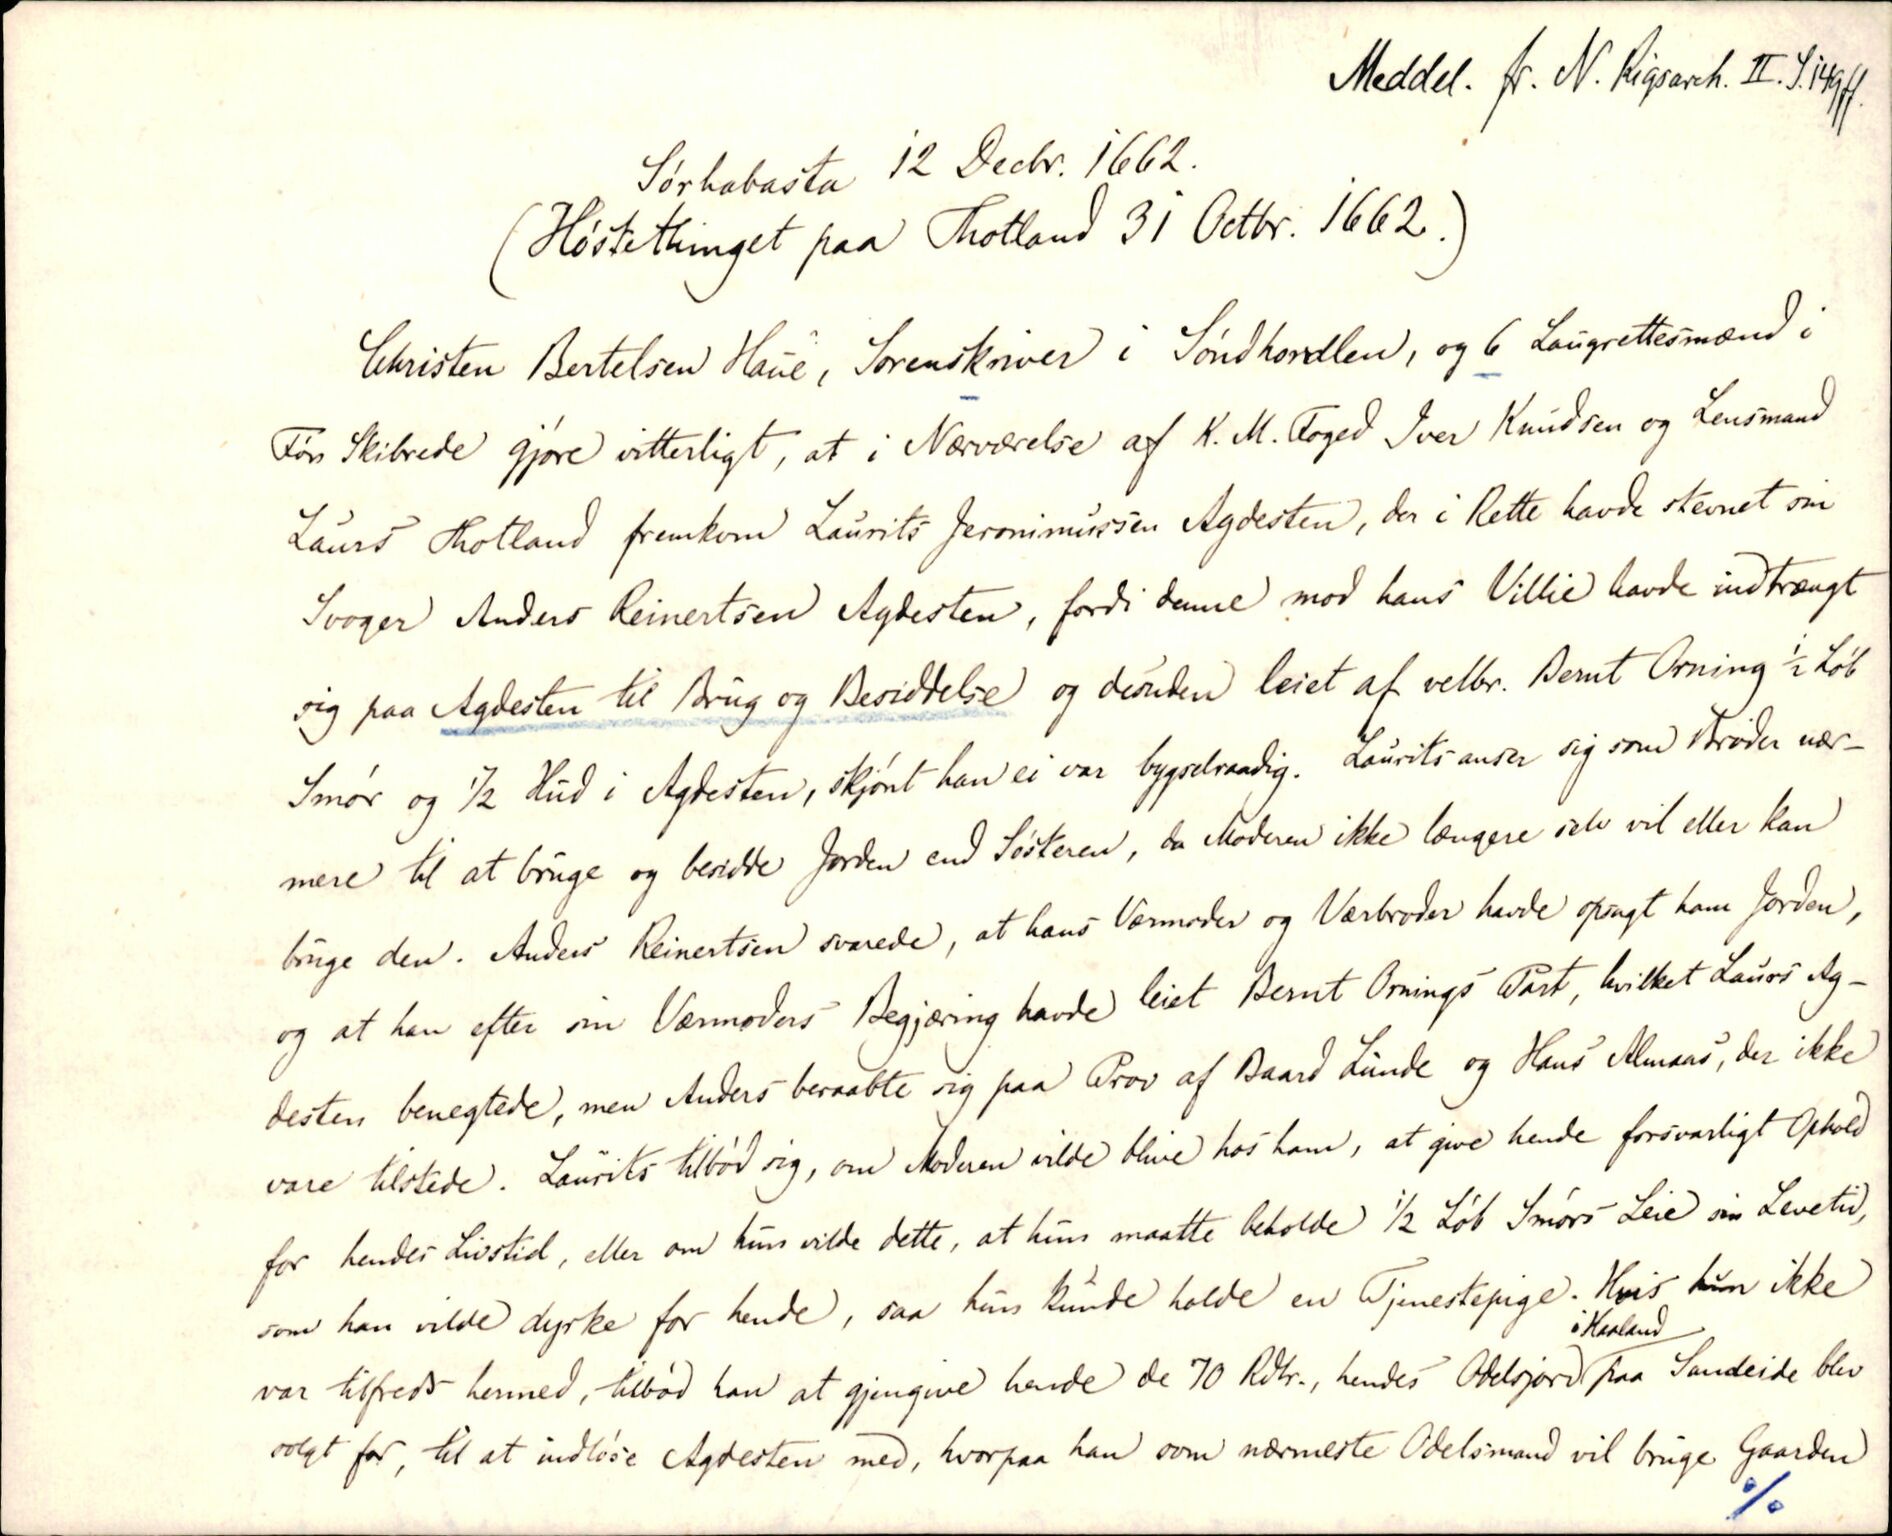 Meddel. fr. N. Rigsarch. II. S. 149 ff.
Sørhabasta 12 Decbr. 1662.
(Høstethinget paa Thotland 31 Octbr. 1662.)
Christen Bertelsen Haue, Sorenskriver i Søndhordlen, og 6 Laugrettesmænd i
Føns Skibrede gjøre vitterligt, at i Nærværelse af K. M. Foged Iver Knudsen og Lensmand
Laurs Thotland fremkom Laurits Jeronimussen Agdesten, der i Rette havde stevnet sin
Svoger Anders Reinertsen Agdesten, fordi denne mod hans Villie havde indtrængt
sig paa Agdesten til Brug og Besiddelse og desuden leiet af velbr. Bernt Orning ½ Løb
Smør og ½ Hud i Agdesten, skjønt han ei var bygselraadig. Laurits anser sig som Broder nær-
mere til at bruge og besidde Jorden end Søsteren, da Moderen ikke længere selv vil eller kan
bruge den. Anders Reinertsen svarede, at hans Værmoder og Værbroder havde opsagt ham Jorden,
og at han efter sin Værmoders Begjæring havde leiet Bernt Ornings Part, hvilket Laurs Ag-
desten benegtede, men Anders beraabte sig paa Prov af Baard Lunde og Hans Almaas, der ikke
vare tilstede. Laurits tilbød sig, om Moderen vilde blive hos ham, at give hende forsvarligt Ophold
for hendes Livstid, eller om hun vilde dette, at hun maatte beholde ½ Løb Smørs Leie sin Levetid,
som han vilde dyrke for hende, saa hun kunde holde en Tjenestepige. Hvis hun ikke
i Haaland
var tilfreds hermed, tilbød han at gjengive hende de 70 Rdlr., hendes Odelsjord paa Sandeide blev
solgt for, til at indløse Agdesten med, hvorpaa han som nærmeste Odelsmand vil bruge Gaarden
%